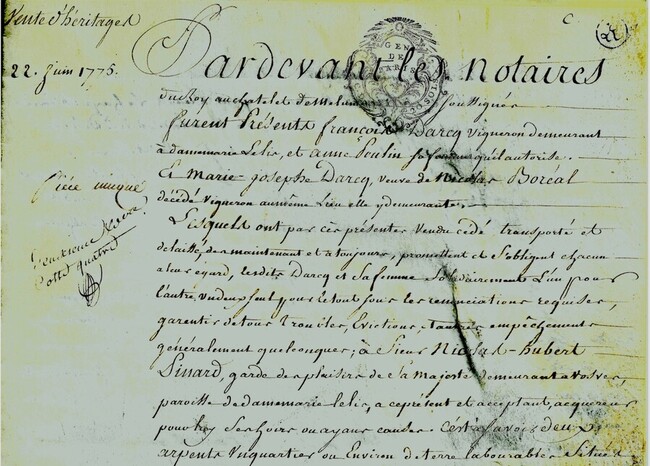 Vente d'héritages
22. Juin 1775.
C
22
GEN
DE
PARIS
2 SOLS
Pardevant les notaires
du Roy au chatelet de Melun soussignés
furent Présents françois Darcq vigneron demeurant
à damemarie Lelis, et anne Poulin sa femme qu'il autorise.
Et Marie-Josephe Darcq, veuve de Nicolas Boréal
décédé vigneron au même Lieu elle y demeurante.
Lesquels ont par ces présentes vendu cédé transporté et
delaissé, des maintenant et à toujours, promettent et s'obligent chacun
a leur egard, lesdits Darcq et sa femme solidairement L'un pour
l'autre, un deux seul pour le tout sous les renonciations requises,
garentir de tous Troubles, Evictions, & autres empêchements
généralement quelconques; à Sieur Nicolas-hubert
Simard, garde des plaisirs de sa Majesté demeurant a Vosves,
paroisse de damemarie lelis, a ce présent et acceptant, acquereur
pour luy ses hoirs ou ayans causes C'est a savoir deux
arpents un quartier ou Environ de terre labourables Situés
Pièce unique
cotte quatre